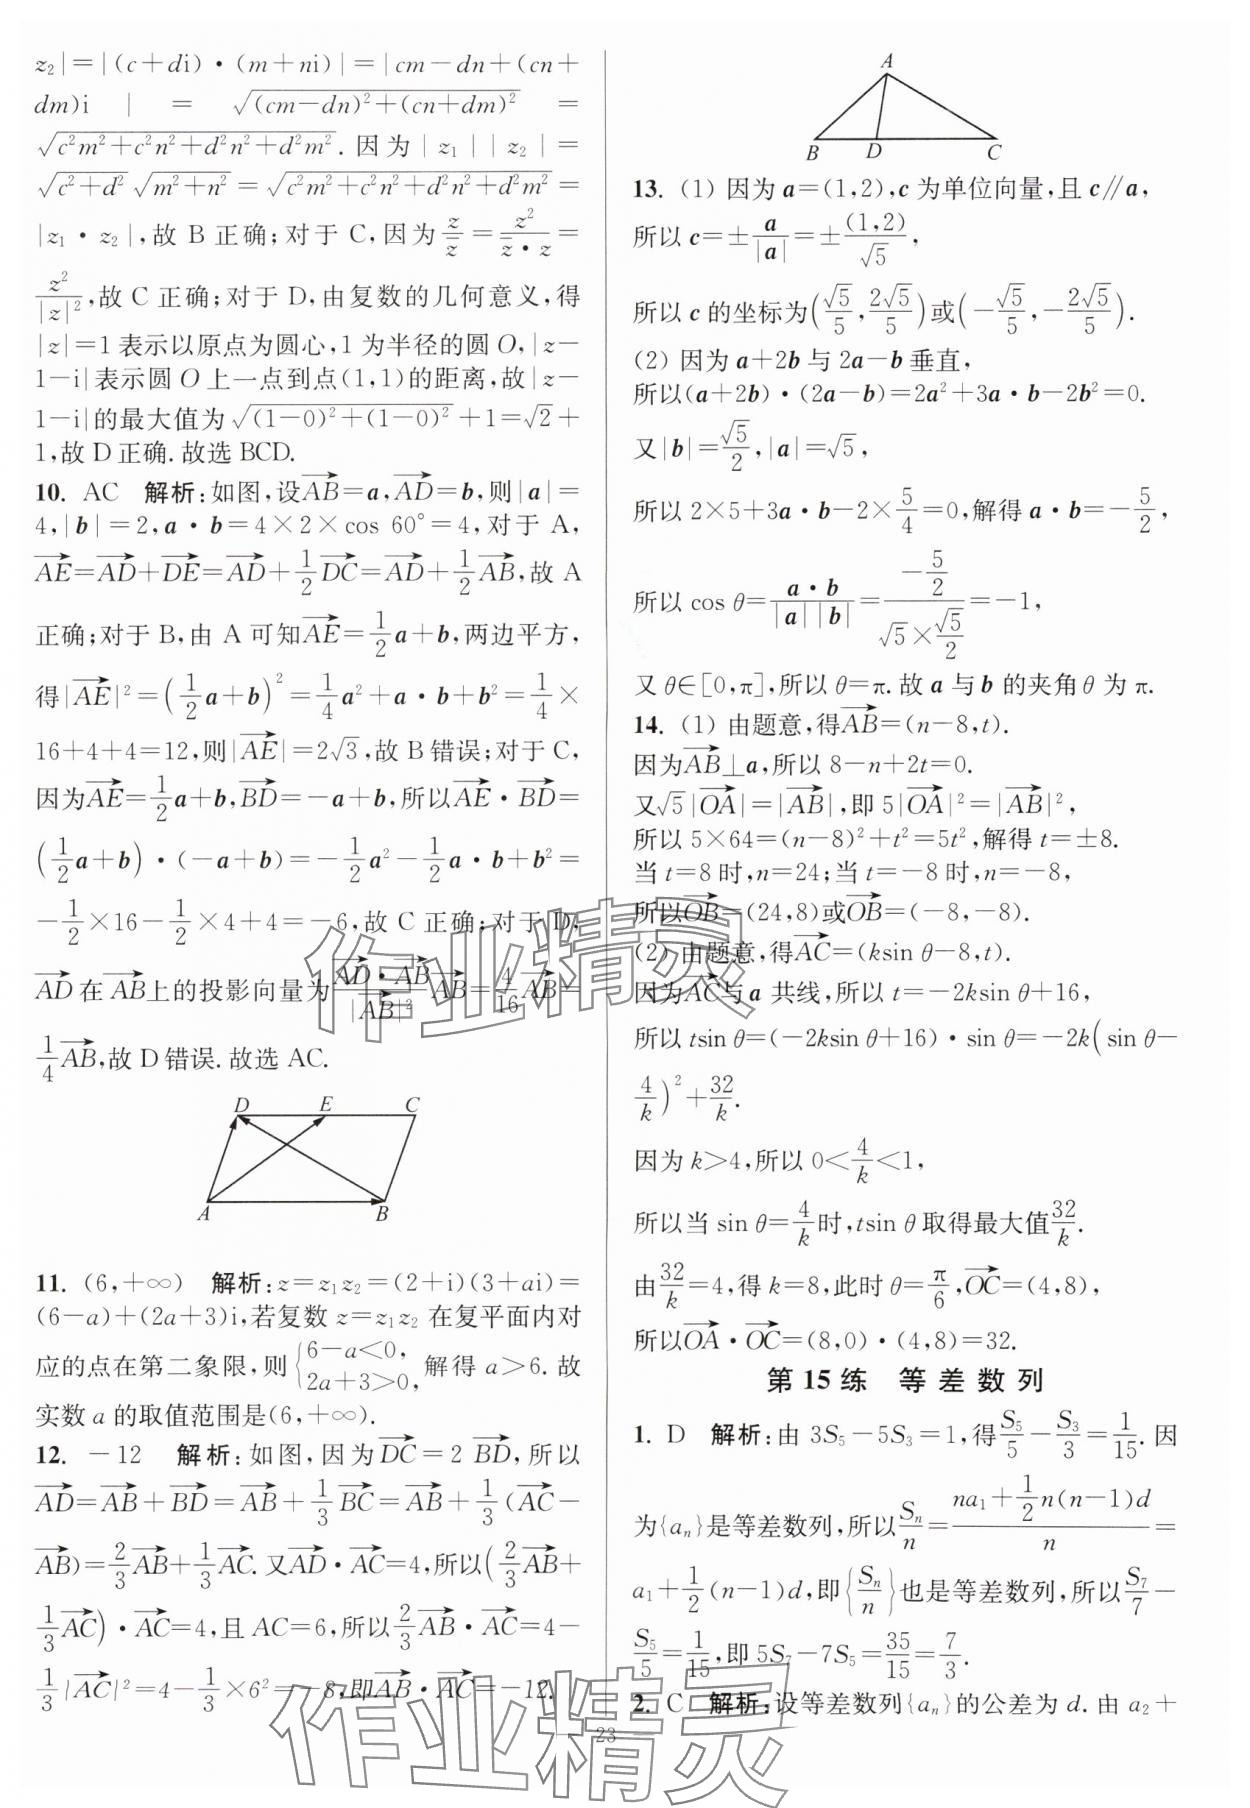 z₂|=|(c+di)·(m+ni)|=|cm-dn+(cn+
dm)i|=√((cm-dn)²+(cn+dm)²)=
√(c²m²+c²n²+d²n²+d²m²).因为|z₁||z₂|=
√(c²+d²)√(m²+n²)=√(c²m²+c²n²+d²n²+d²m²)=
|z₁·z₂|,故B正确;对于C,因为z/z̄=z²/(z̄·z)=
z²/|z|²,故C正确;对于D,由复数的几何意义,得
|z|=1表示以原点为圆心,1为半径的圆O,|z-
1-i|表示圆O上一点到点(1,1)的距离,故|z-
1-i|的最大值为√((1-0)²+(1-0)²)+1=√2+
1,故D正确.故选BCD.
10. AC 解析:如图,设AB→=a,AD→=b,则|a|=
4,|b|=2,a·b=4×2×cos 60°=4,对于A,
AE→=AD→+DE→=AD→+1/2DC→=AD→+1/2AB→,故A
正确;对于B,由A可知AE→=1/2a+b,两边平方,
得|AE→|²=(1/2a+b)²=1/4a²+a·b+b²=1/4×
16+4+4=12,则|AE→|=2√3,故B错误;对于C,
因为AE→=1/2a+b,BD→=-a+b,所以AE→·BD→=
(1/2a+b)·(-a+b)=-1/2a²-1/2a·b+b²=
-1/2×16-1/2×4+4=-6,故C正确;对于D,
AD→在AB→上的投影向量为(AD→·AB→)/|AB→|² AB→=4/16AB→=
1/4AB→,故D错误.故选AC.
D E C
A B
11. (6,+∞) 解析:z=z₁z₂=(2+i)(3+ai)=
(6-a)+(2a+3)i,若复数z=z₁z₂在复平面内对
应的点在第二象限,则{6-a<0, 2a+3>0, 解得a>6.故
实数a的取值范围是(6,+∞).
12. -12 解析:如图,因为DC→=2 BD→,所以
AD→=AB→+BD→=AB→+1/3BC→=AB→+1/3(AC→-
AB→)=2/3AB→+1/3AC→.又AD→·AC→=4,所以(2/3AB→+
1/3AC→)·AC→=4,且AC=6,所以2/3AB→·AC→=4-
1/3|AC→|²=4-1/3×6²=-8,即AB→·AC→=-12.
A
B D C
13. (1) 因为a=(1,2),c为单位向量,且c∥a,
所以c=±a/|a|=±(1,2)/√5,
所以c的坐标为(√5/5,2√5/5)或(-√5/5,-2√5/5).
(2) 因为a+2b与2a-b垂直,
所以(a+2b)·(2a-b)=2a²+3a·b-2b²=0.
又|b|=√5/2,|a|=√5,
所以2×5+3a·b-2×5/4=0,解得a·b=-5/2,
所以cos θ=(a·b)/(|a||b|)=(-5/2)/(√5×√5/2)=-1,
又θ∈[0,π],所以θ=π.故a与b的夹角θ为π.
14. (1) 由题意,得AB→=(n-8,t).
因为AB→⊥a,所以8-n+2t=0.
又√5|OA→|=|AB→|,即5|OA→|²=|AB→|²,
所以5×64=(n-8)²+t²=5t²,解得t=±8.
当t=8时,n=24;当t=-8时,n=-8,
所以OB→=(24,8)或OB→=(-8,-8).
(2) 由题意,得AC→=(ksin θ-8,t).
因为AC→与a共线,所以t=-2ksin θ+16,
所以tsin θ=(-2ksin θ+16)·sin θ=-2k(sin θ-
4/k)²+32/k.
因为k>4,所以0<4/k<1,
所以当sin θ=4/k时,tsin θ取得最大值32/k.
由32/k=4,得k=8,此时θ=π/6,OC→=(4,8),
所以OA→·OC→=(8,0)·(4,8)=32.
第15练 等差数列
1. D 解析:由3S₅-5S₃=1,得S₅/5-S₃/3=1/15.因
为{aₙ}是等差数列,所以Sₙ/n=(na₁+1/2n(n-1)d)/n=
a₁+1/2(n-1)d,即{Sₙ/n}也是等差数列,所以S₇/7-
S₅/5=1/15,即5S₇-7S₅=35/15=7/3.
2. C 解析:设等差数列{aₙ}的公差为d.由a₂+
23
作业精灵
作业精灵